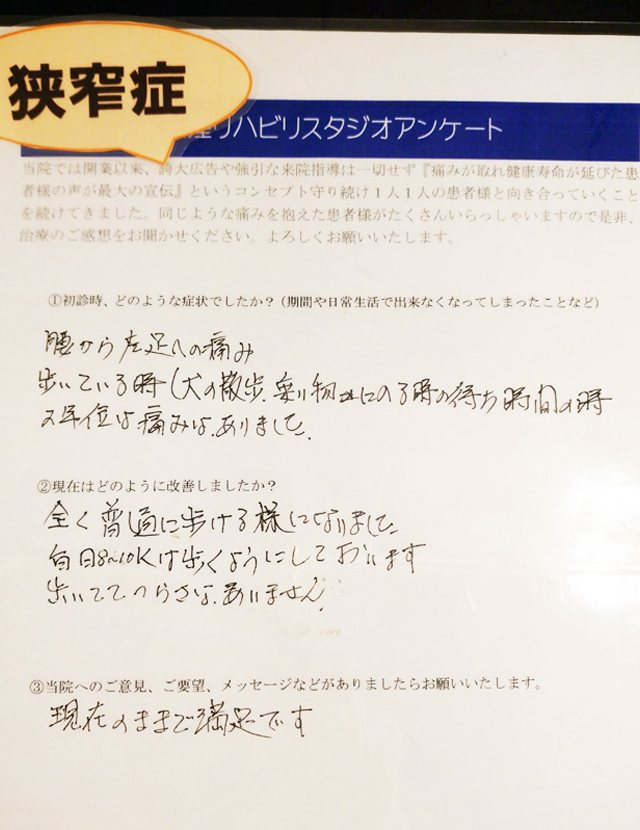 狭窄症
リハビリスタジオアンケート
当院では開業以来、誇大広告や強引な来院指導は一切せず『痛みが取れ健康寿命が延びた患
者様の声が最大の宣伝』というコンセプト守り続け1人1人の患者様と向き合っていくこと
を続けてきました。同じような痛みを抱えた患者様がたくさんいらっしゃいますので是非、
治療のご感想をお聞かせください。よろしくお願いいたします。
①初診時、どのような症状でしたか?(期間や日常生活で出来なくなってしまったことなど)
腰から左足への痛み
歩いている時(犬の散歩、乗り物にのる時の待ち時間の時
2年位は痛みはありました。
②現在はどのように改善しましたか?
全く普通に歩ける様になりました
毎日8~10Kは歩くようにしております
歩いててつらさはありません。
③当院へのご意見、ご要望、メッセージなどがありましたらお願いいたします。
現在のままで満足です